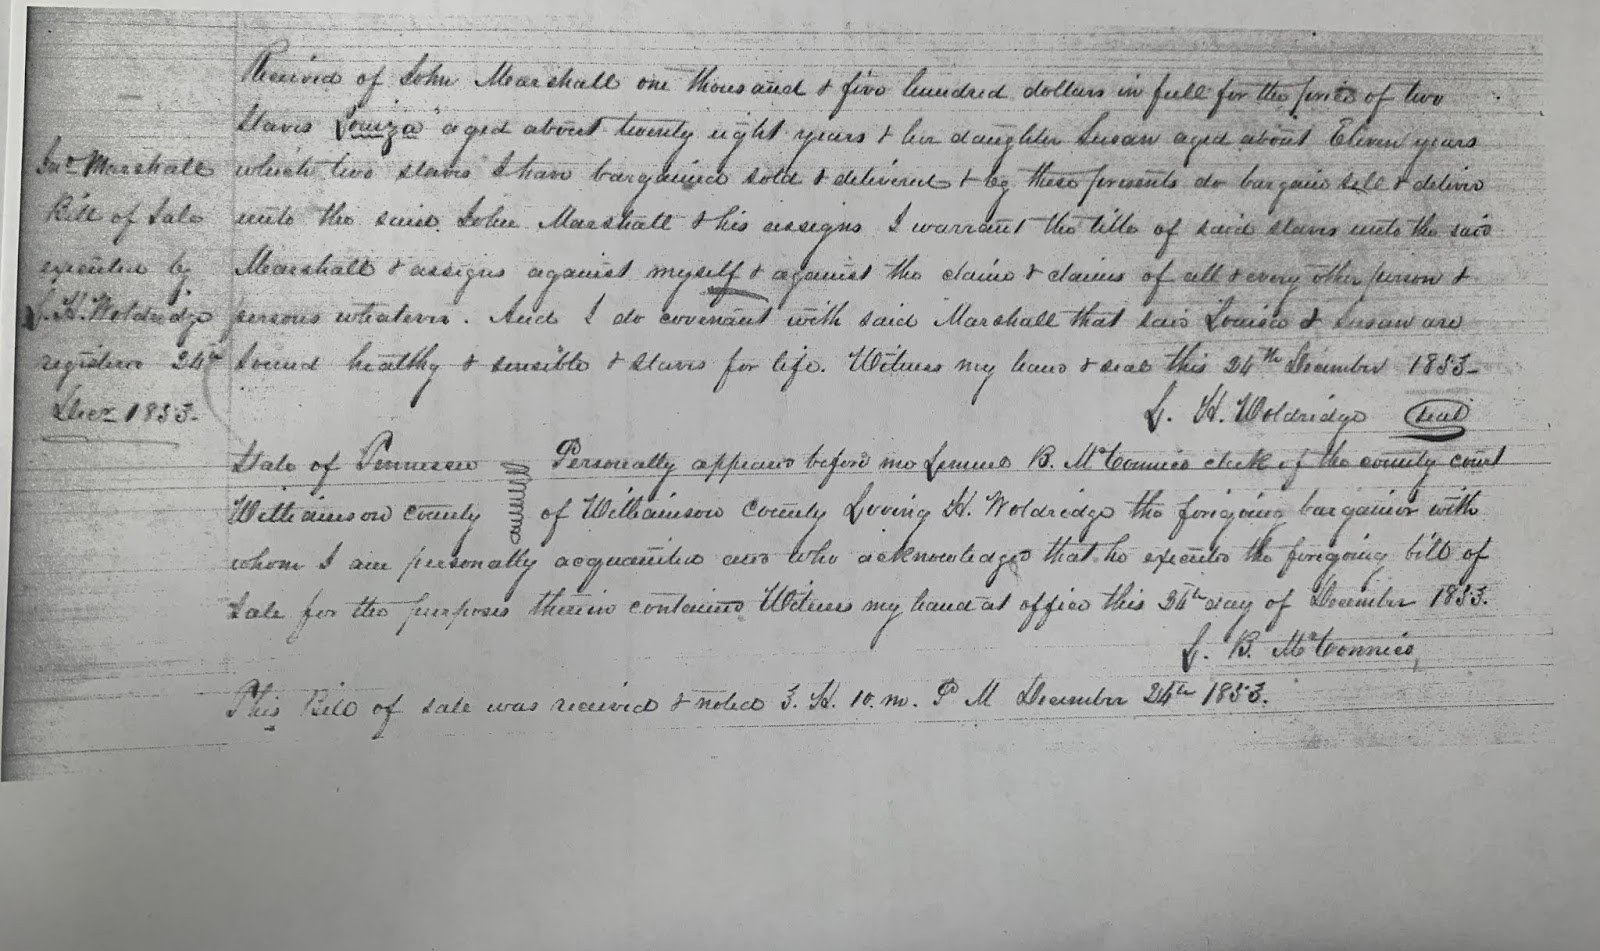 Received of John Marshall one thousand & five hundred dollars in full for the price of two
slaves Louiza aged about twenty eight years & her daughter Susan aged about Eleven years
which two slaves I have bargained sold & delivered & by these presents do bargain sell & deliver
unto the said John Marshall & his assigns I warrant the title of said slaves unto the said
Marshall & assigns against myself & against the claim & claims of all & every other person &
persons whatever. And I do covenant with said Marshall that said Louisa & Susan are
sound healthy & sensible & slaves for life. Witness my hand & seal this 24th December 1853-
L. H. Woldridge seal
Jno Marshall
Bill of Sale
executed by
L. H. Woldridge
registered 24th
Decr 1853.
State of Tennessee
Williamson county
Personally appeared before me Lemuel B. McConnico clerk of the county court
of Williamson County Loving H. Woldridge the foregoing bargainor with
whom I am personally acquainted and who acknowledged that he executed the foregoing bill of
sale for the purposes therein contained Witness my hand at office this 24th day of December 1853.
L. B. McConnico,
This Bill of sale was received & noted 3. H. 10. m. P M December 24th 1853.